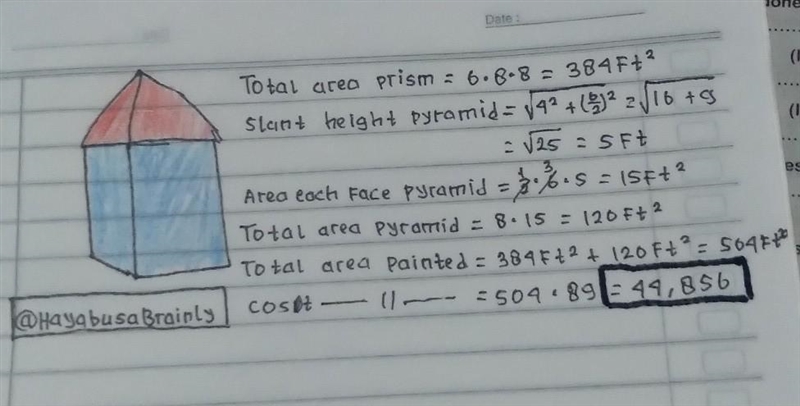 Date :
Total area prism = 6 • 8 • 8 = 384Ft²
Slant height pyramid = √4² + (6/2)² = √16 + 9
= √25 = 5Ft
Area each Face pyramid = 1/2 • 6 3 • 5 = 15Ft²
Total area pyramid = 8 • 15 = 120Ft²
Total area painted = 384Ft² + 120Ft² = 504Ft²
cost — 11 — = 504 • 89 = 44,856
@HayabusaBrainly